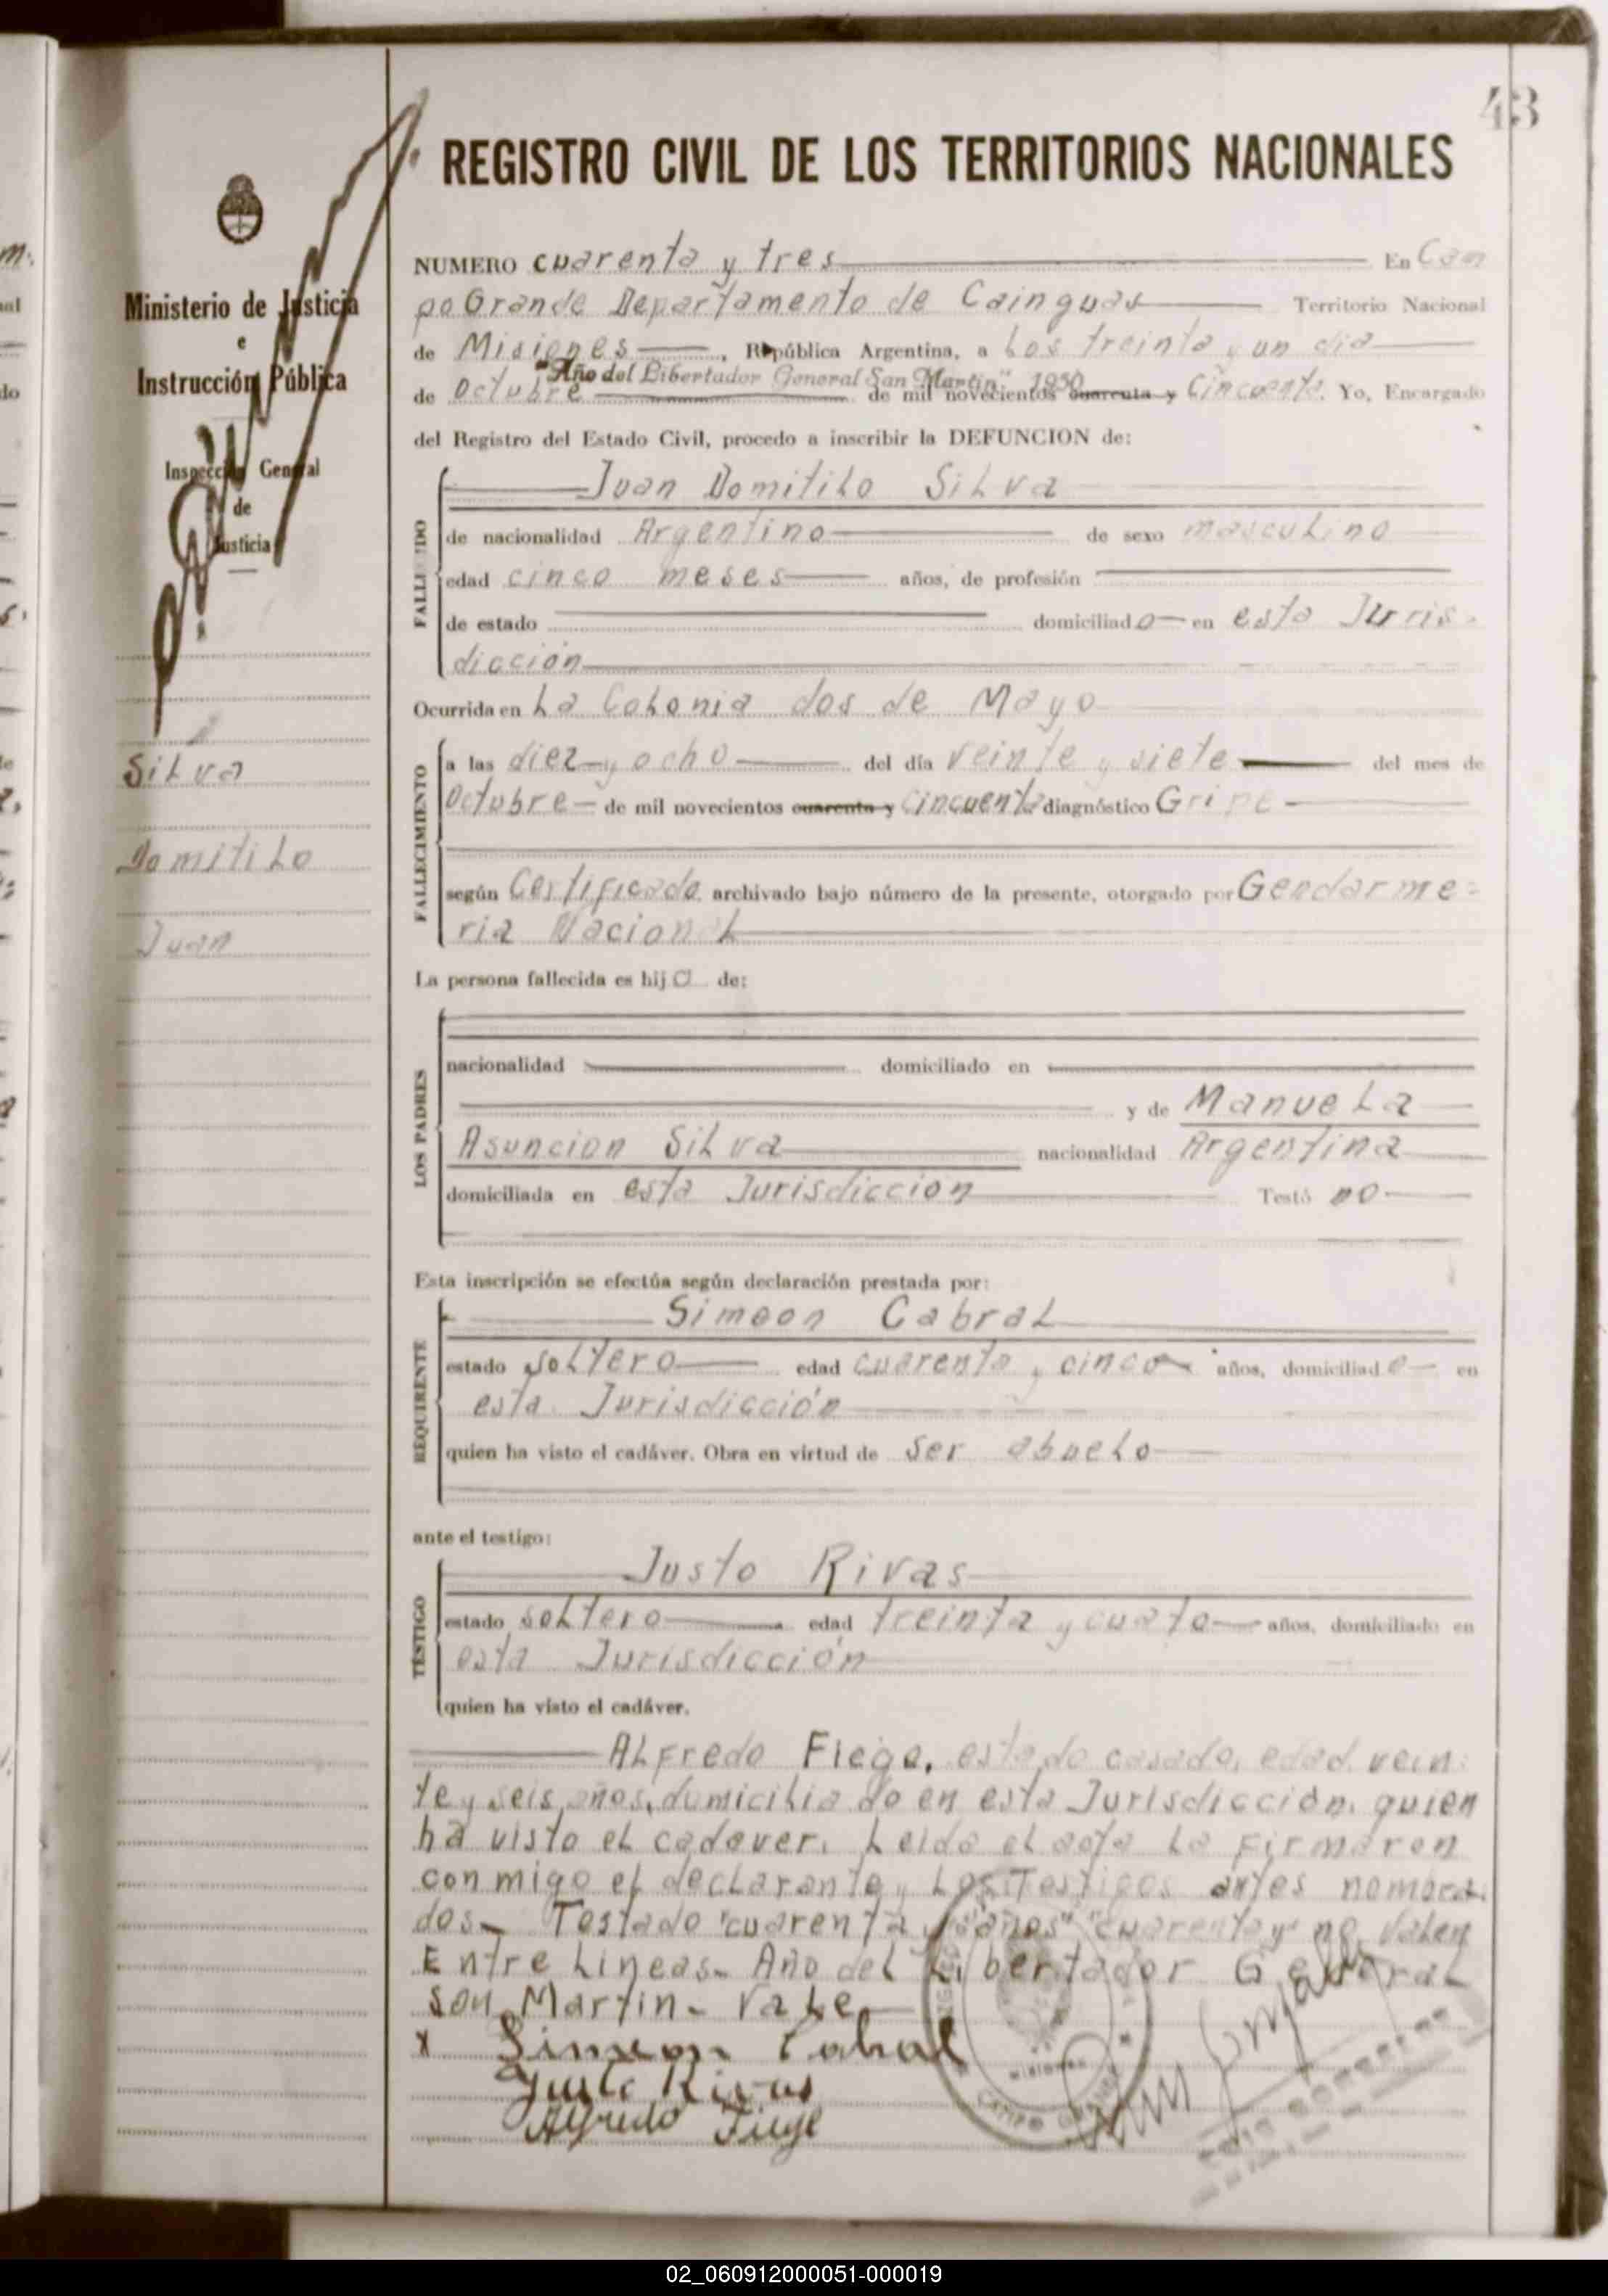 43
REGISTRO CIVIL DE LOS TERRITORIOS NACIONALES
Ministerio de Justicia
e
Instrucción Pública
Inspección General
de
Justicia
Silva
Domitilo
Juan
NUMERO cuarenta y tres En Cam
po Grande Departamento de Cainguas Territorio Nacional
de Misiones, República Argentina, a los treinta y un dia
"Año del Libertador General San Martin" 1950
de Octubre de mil novecientos cuarenta y Cincuenta. Yo, Encargado
del Registro del Estado Civil, procedo a inscribir la DEFUNCION de:
FALLECIDO
Juan Domitilo Silva
de nacionalidad Argentino de sexo masculino
edad cinco meses años, de profesión
de estado domiciliado en esta Juris-
dicción
Ocurrida en la Colonia dos de Mayo
FALLECIMIENTO
a las diez y ocho del día veinte y siete del mes de
Octubre de mil novecientos cuarenta y cincuenta diagnóstico Gripe
según Certificado archivado bajo número de la presente, otorgado por Gendarme=
ria Nacional
La persona fallecida es hijo de:
LOS PADRES
nacionalidad domiciliado en
y de Manuela
Asuncion Silva nacionalidad Argentina
domiciliada en esta Jurisdicción Testó no
Esta inscripción se efectúa según declaración prestada por:
REQUIRENTE
Simeon Cabral
estado soltero edad cuarenta y cinco años, domiciliado en
esta Jurisdicción
quien ha visto el cadáver. Obra en virtud de ser abuelo
ante el testigo:
TESTIGO
Justo Rivas
estado soltero edad treinta y cuato años, domiciliado en
esta Jurisdicción
quien ha visto el cadáver.
Alfredo Fiege, estado casado, edad vein
te y seis años, domiciliado en esta Jurisdicción, quien
ha visto el cadaver. Leida el acta la firmaron
conmigo el declarante y los Testigos antes nombra
dos- Testado "cuarenta y "años" "cuarenta y" no valen
Entre lineas- Año del Libertador General
San Martin- Vale
x Simeon Cabral
Justo Rivas
Alfredo Fiege
MISIONES
CAMPO GRANDE
02_060912000051-000019